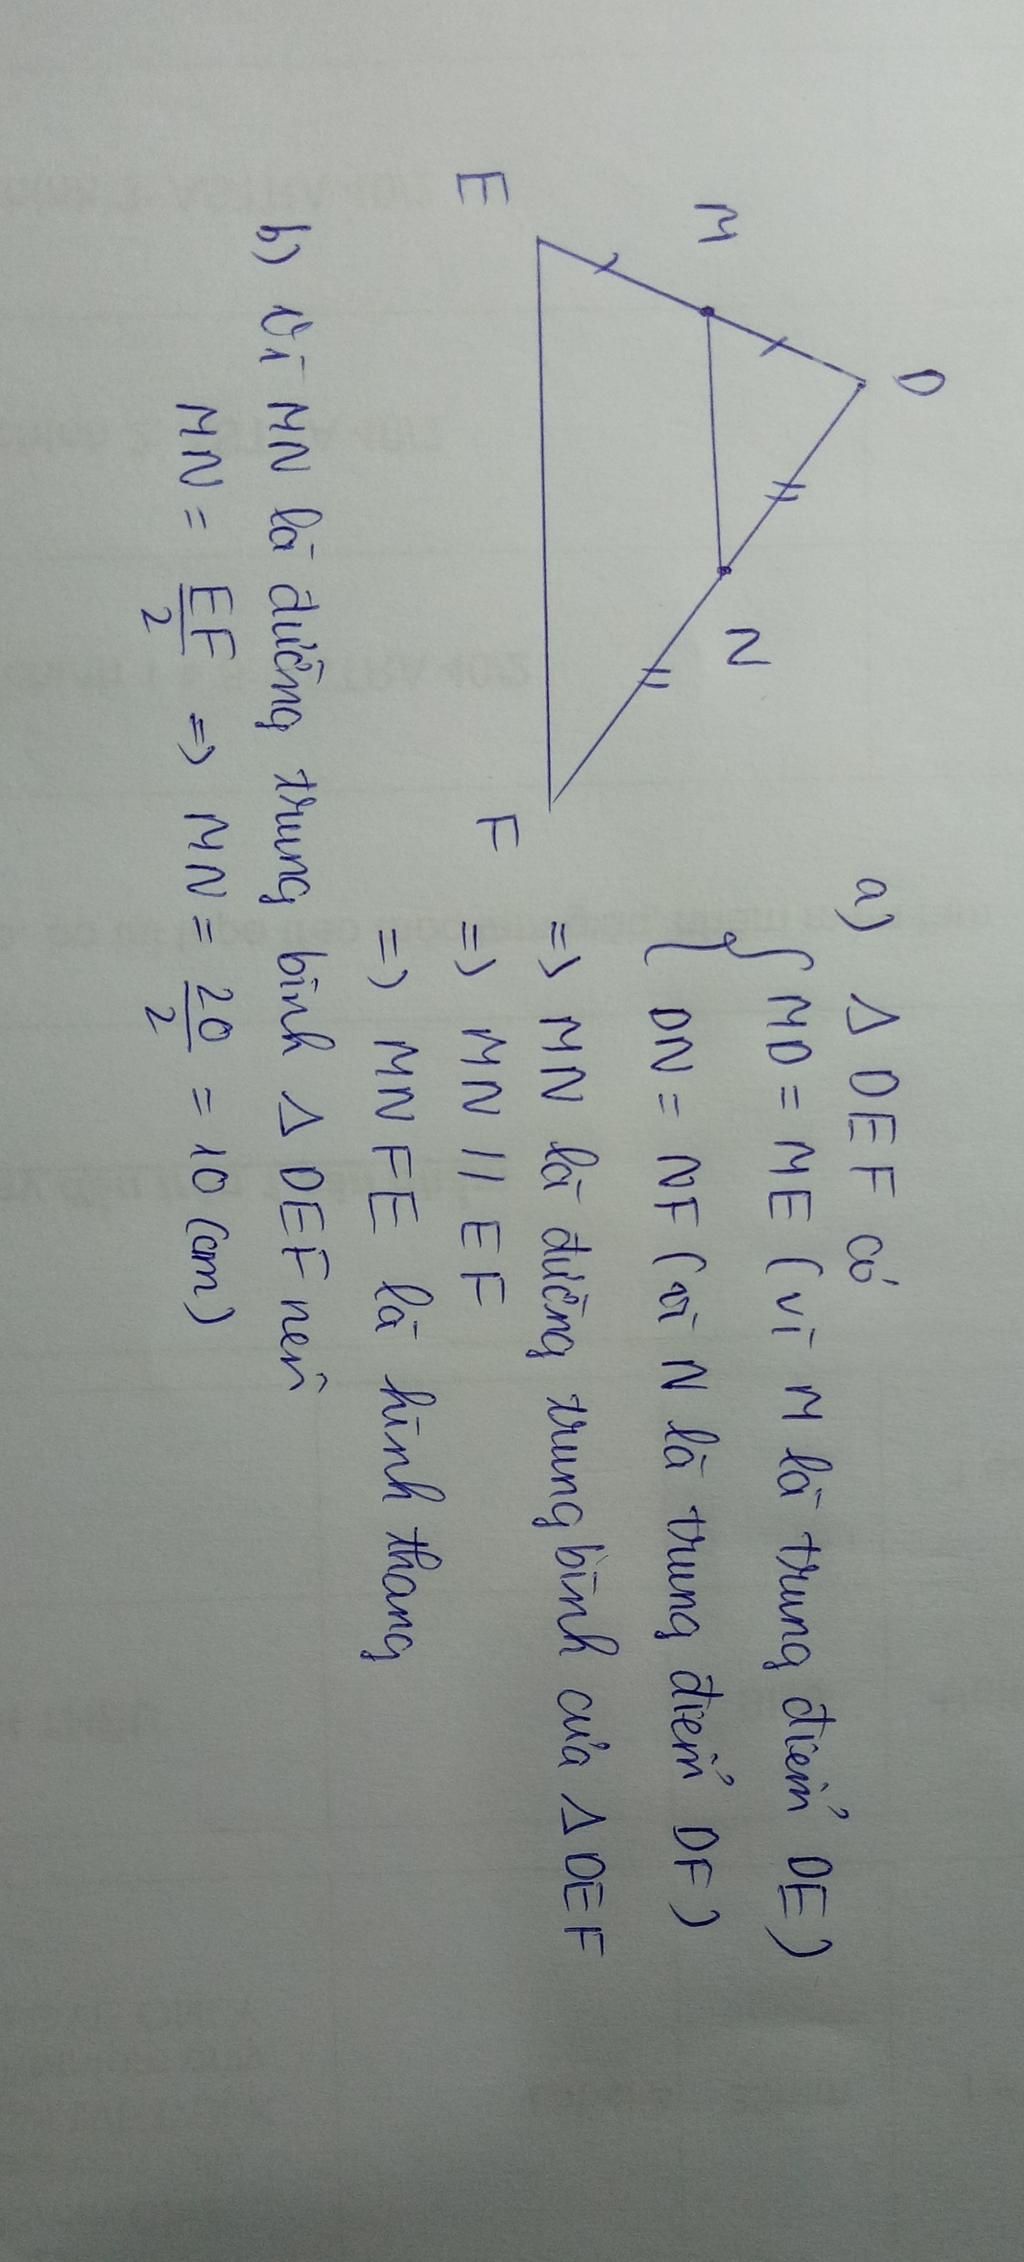 D
M
N
E
F
a) Δ DEF có
MD = ME (vì M là trung điểm DE)
DN = NF (vì N là trung điểm DF)
=> MN là đường trung bình của Δ DEF
=> MN // EF
=> MNFE là hình thang
b) Vì MN là đường trung bình Δ DEF nên
MN = EF/2 => MN = 20/2 = 10 (cm)